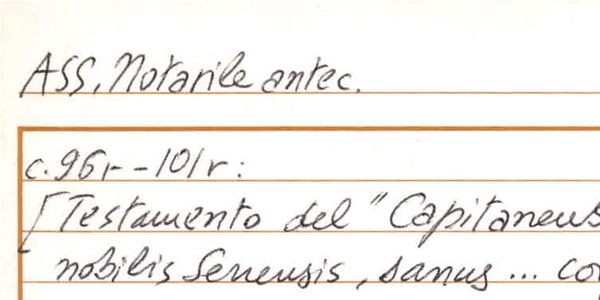 ASS, Notarile antec.
c. 96r-101r:
[Testamento del "Capitaneus
nobilis Senensis, sanus ... co